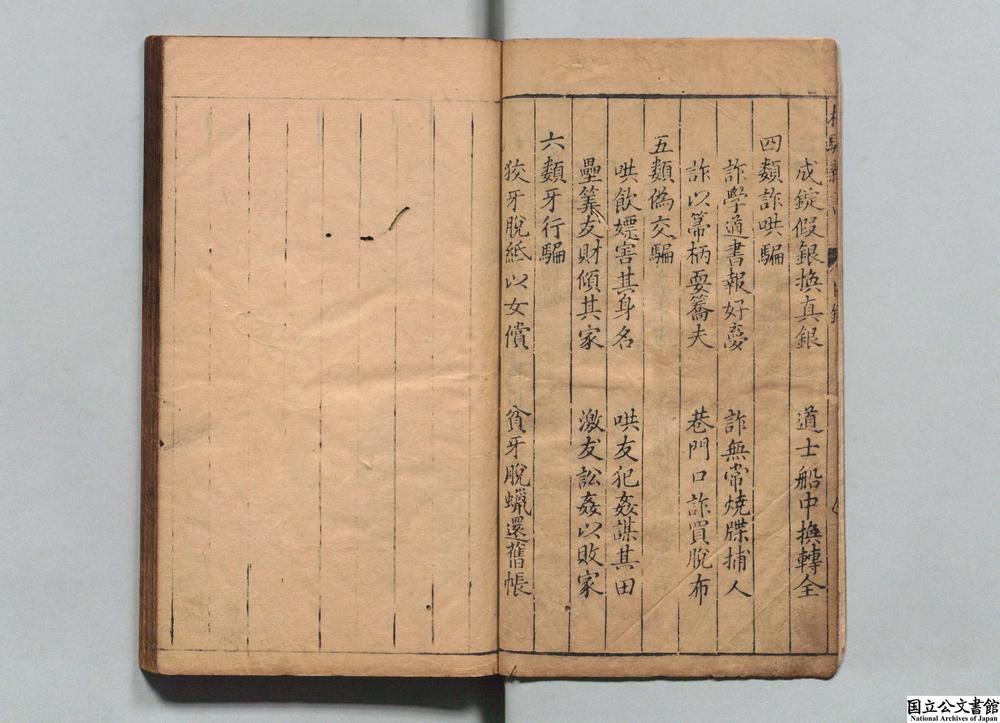 成錠假銀換真銀　道士船中換轉全
四類詐哄騙
詐學道書報好夢　詐無常燒牒捕人
詐以箒柄耍簥夫　巷門口詐買脫布
五類僞交騙
哄飲嫖害其身名　哄友犯姦謀其田
壘筭友財傾其家　激友訟姦以敗家
六類牙行騙
狡牙脫紙以女償　貧牙脫蠟還舊帳
国立公文書館
National Archives of Japan